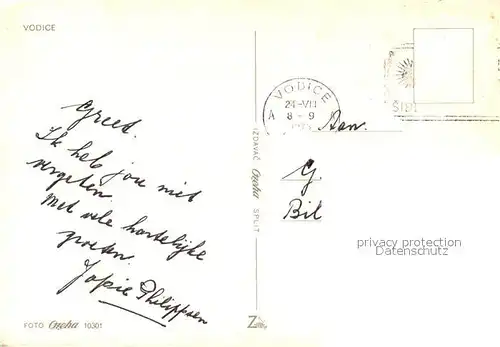 VODICE
Greet.
Ik heb jou niet
vergeten.
Met vele hartelijke
groeten.
Jopie Philippsen
FOTO Čačka 10301
IZDAVAČ Čačka SPLIT
VODICE
24-VII
8-9
A
Aan.
G.
Bil
privacy protection
Datenschutz